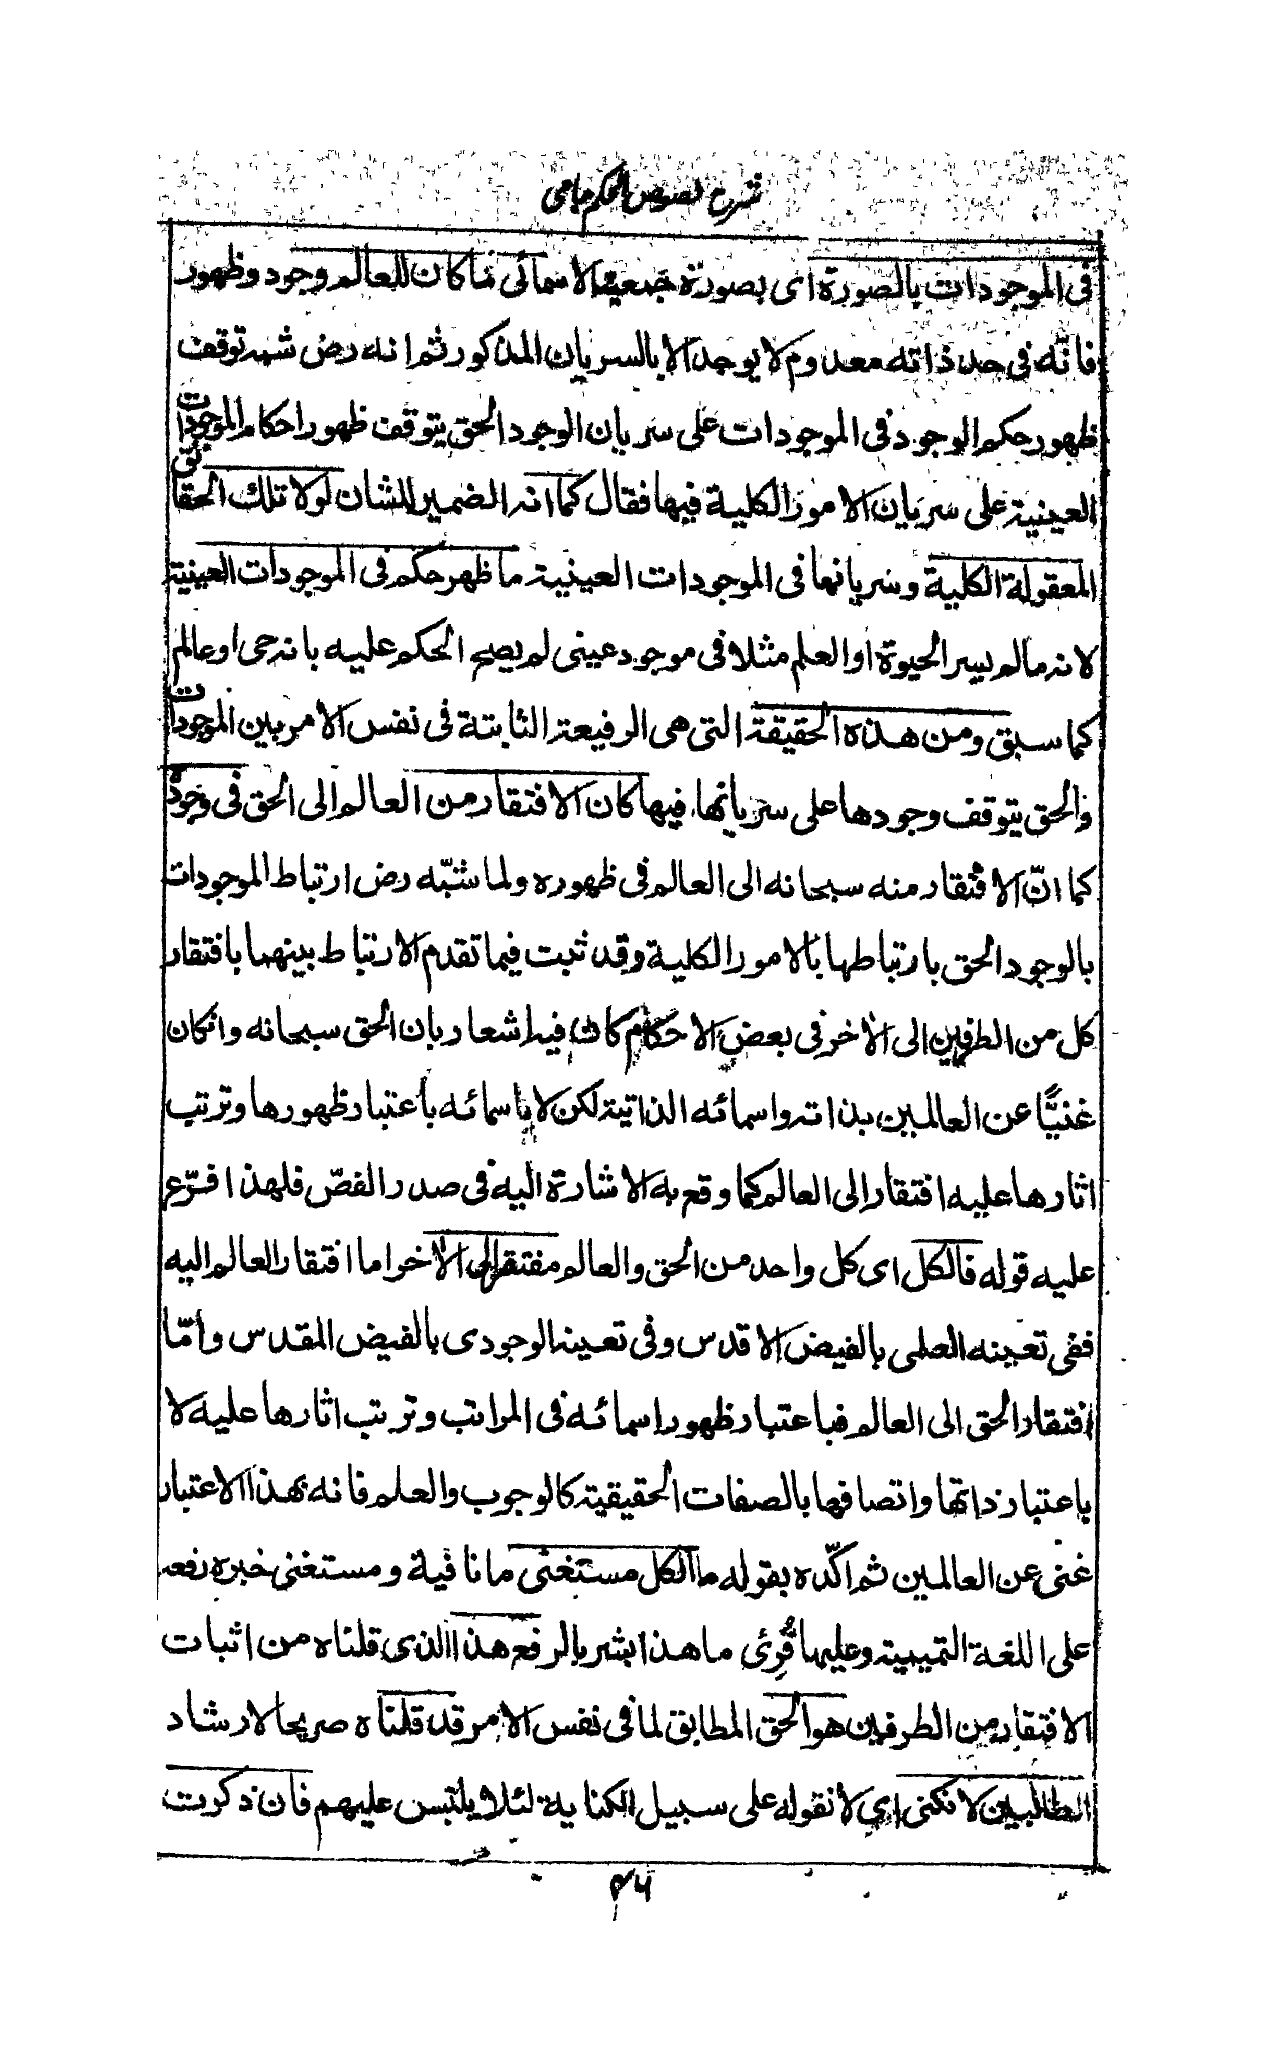 شرح فصوص الحكم جامی
فی الموجودات بالصورة ای بصورة جمعية الاسمائی ما كان للعالم وجود وظهور
فانّه فی حد ذاته معدوم لا يوجد الا بالسريان المذكور ثم انه رض شبه توقف
ظهور حكم الوجود فی الموجودات علی سريان الوجود الحق بتوقف ظهور احكام الموجودات
العينية علی سريان الامور الكلية فيها فقال كما انه الضمير للشان لولا تلك الحقائق
المعقولة الكلية وسريانها فی الموجودات العينية ما ظهر حكم فی الموجودات العينية
لانه مالم يسر الحيوة او العلم مثلا فی موجود عينی لم يصح الحكم عليه بانه حی او عالم
كما سبق ومن هذه الحقيقة التی هی الرفيعة الثابتة فی نفس الامر بين الموجودات
والحق يتوقف وجودها علی سريانها فيها كان الافتقار من العالم الی الحق فی وجوده
كما انّ الافتقار منه سبحانه الی العالم فی ظهوره ولما شبّه رض ارتباط الموجودات
بالوجود الحق بارتباطها بالامور الكلية وقد ثبت فيما تقدم الارتباط بينهما بافتقار
كل من الطرفين الی الاخر فی بعض الاحكام كان فيه اشعار بان الحق سبحانه وان كان
غنيًّا عن العالمين بذاته واسمائه الذاتية لكن لا باسمائه باعتبار ظهورها وترتب
اثارها عليه افتقار الی العالم كما وقع به الاشارة اليه فی صدر الفصّ فلهذا فرّع
عليه قوله فالكل ای كل واحد من الحق والعالم مفتقر الی الاخر اما افتقار العالم اليه
ففی تعينه العلمی بالفيض الاقدس وفی تعينه الوجودی بالفيض المقدس وأمّا
افتقار الحق الی العالم فباعتبار ظهور اسمائه فی المراتب وترتب اثارها عليه لا
باعتبار ذاتها واتصافها بالصفات الحقيقية كالوجوب والعلم فانه بهذا الاعتبار
غنی عن العالمين ثم اكّده بقوله ما الكل مستغنی ما نافية ومستغنی خبره رفعه
علی اللغة التميمية وعليها قُرِئ ما هذا بشر بالرفع هذا الذی قلناه من اثبات
الافتقار من الطرفين هو الحق المطابق لما فی نفس الامر قد قلناه صريحا لارشاد
الطالبين لا نكنی ای لا نقوله علی سبيل الكناية لئلا يلتبس عليهم فان ذكرت
۴۶